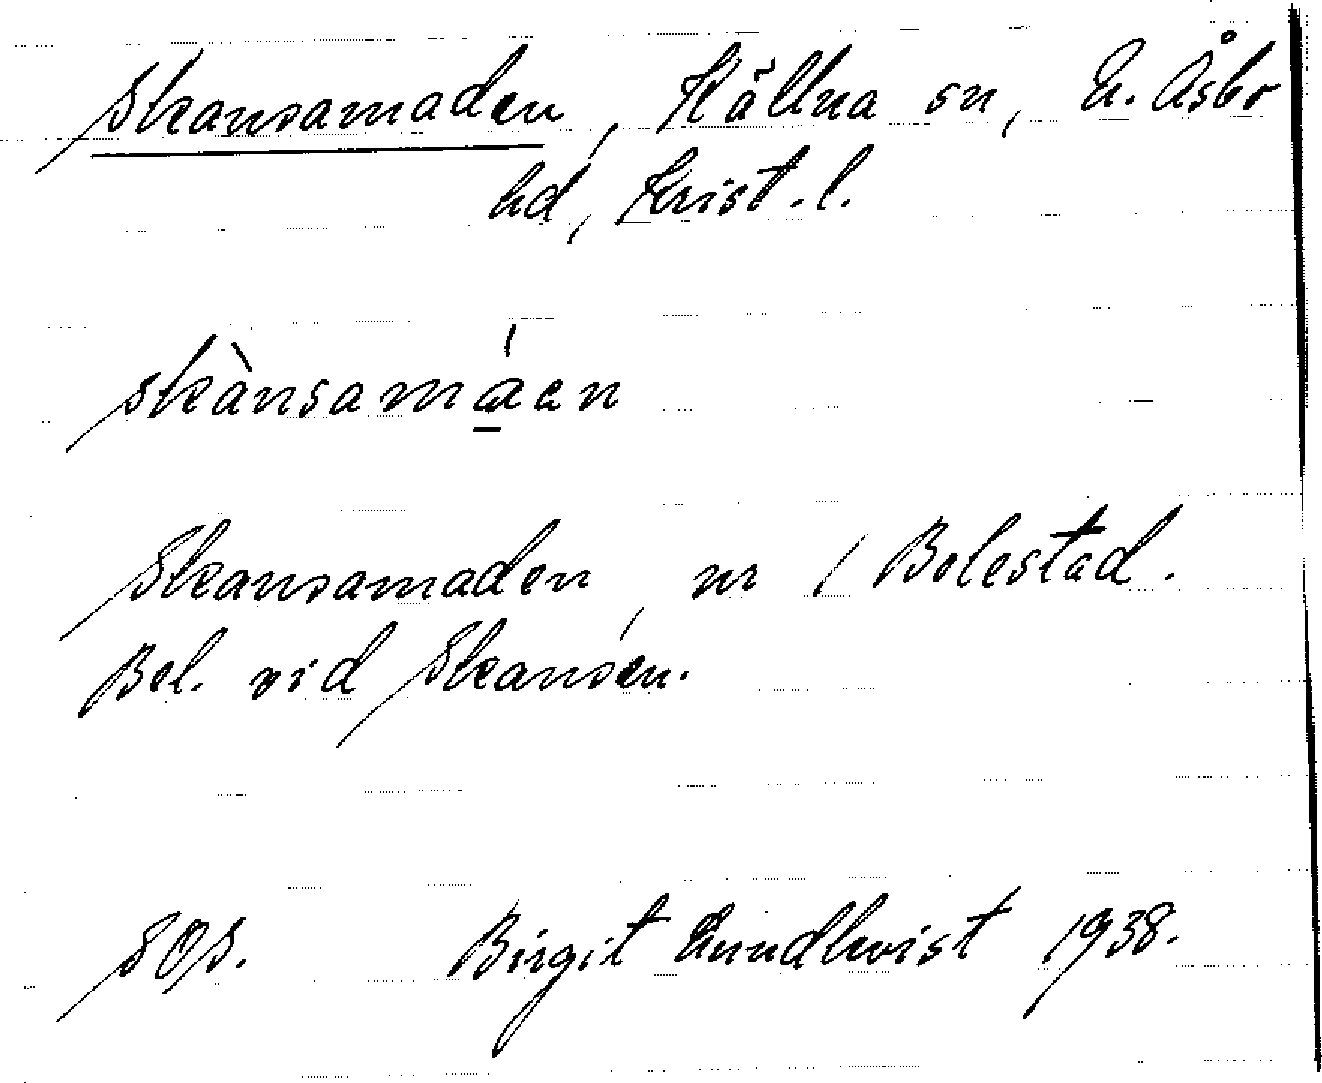 Skansamaden, Källna sn, N. Åsbo
hd, Krist. l.
skànsamáen
Skansamaden, nr 1 Bolestad.
Bel. vid Skansen.
SOS. Birgit Lundkvist 1938.